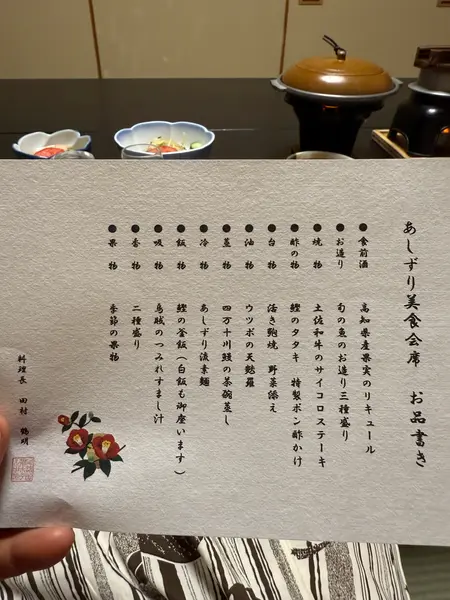 あしずり美食会席　お品書き
●食前酒　高知県産果実のリキュール
●お造り　旬の魚のお造り三種盛り
●焼物　土佐和牛のサイコロステーキ
●酢の物　鰹のタタキ　特製ポン酢かけ
●台物　活き鮑焼　野菜添え
●油物　ウツボの天麩羅
●蒸物　四万十川鰻の茶碗蒸し
●冷物　あしずり流素麺
●飯物　鰹の釜飯（白飯も御座います）
●吸物　烏賊のつみれすまし汁
●香物　二種盛り
●果物　季節の果物
料理長　田村　鶴明